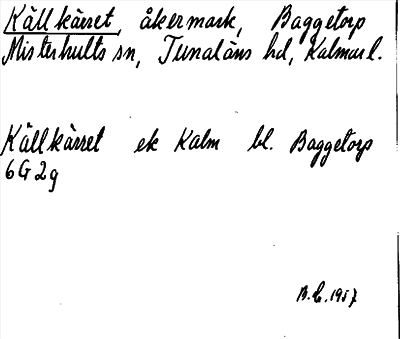 Källkärret, åkermark, Baggetorp
Misterhults sn, Tunaläns hd, Kalmar l.
Källkärret ek Kalm bl. Baggetorp
6G2g
1957